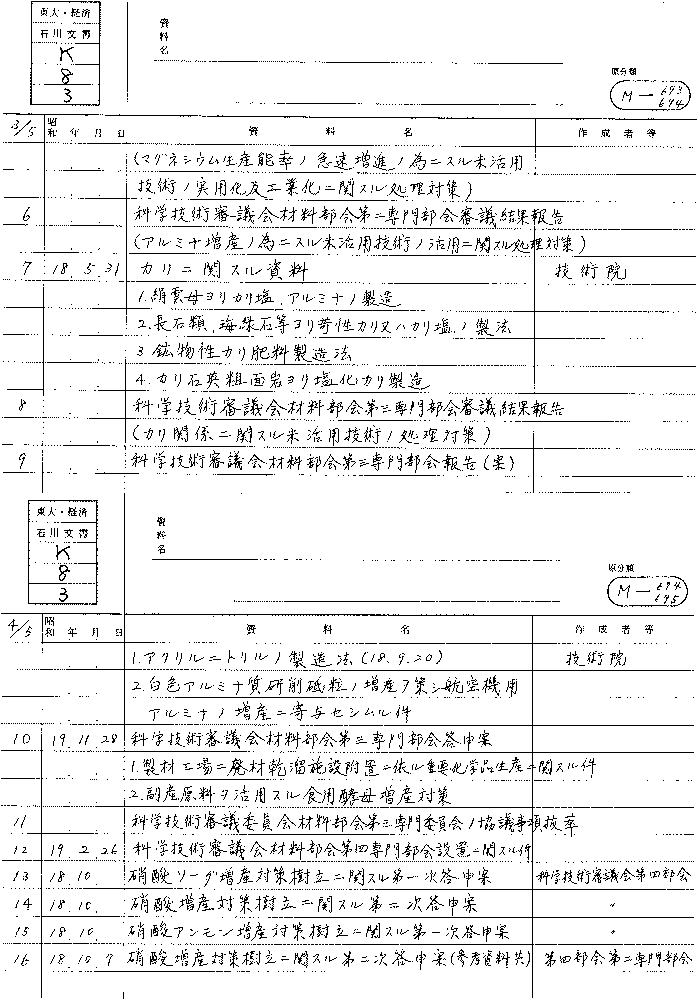 東大・経済
石川文簿
K
8
3
資料名
原分類
M-693
694
3/5 昭和 年 月 日 資料名 作成者等
(マグネシウム生産能率ノ急速増進ノ為ニスル未活用
技術ノ実用化及工業化ニ関スル処理対策)
6 科学技術審議会材料部会第二専門部会審議結果報告
(アルミナ増産ノ為ニスル未活用技術ノ活用ニ関スル処理対策)
7 18 5 31 カリニ関スル資料 技術院
1.絹雲母ヨリカリ塩、アルミナノ製造
2.長石類、海緑石等ヨリ苛性カリ又ハカリ塩ノ製法
3 鉱物性カリ肥料製造法
4.カリ石英粗面岩ヨリ塩化カリ製造
8 科学技術審議会材料部会第三専門部会審議結果報告
(カリ関係ニ関スル未活用技術ノ処理対策)
9 科学技術審議会材料部会第三専門部会報告(案)
東大・経済
石川文簿
K
8
3
資料名
原分類
M-694
695
4/5 昭和 年 月 日 資料名 作成者等
1.アクリルニトリルノ製造法(18.9.20) 技術院
2.白色アルミナ質研削砥粒ノ増産ヲ策シ航空機用
アルミナノ増産ニ寄与セシムル件
10 19 11 28 科学技術審議会材料部会第三専門部会答申案
1.製材工場ニ廃材乾溜施設附置ニ依ル重要化学品生産ニ関スル件
2.副産原料ヲ活用スル食用酵母増産対策
11 科学技術審議委員会材料部会第三専門委員会ノ協議事項抜萃
12 19 2 26 科学技術審議会材料部会第四専門部会設置ニ関スル件
13 18 10 硝酸ソーダ増産対策樹立ニ関スル第一次答申案 科学技術審議会第四部会
14 18 10 硝酸増産対策樹立ニ関スル第二次答申案 〃
15 18 10 硝酸アンモン増産対策樹立ニ関スル第一次答申案 〃
16 18 10 7 硝酸増産対策樹立ニ関スル第二次答申案(参考資料共) 第四部会第二専門部会